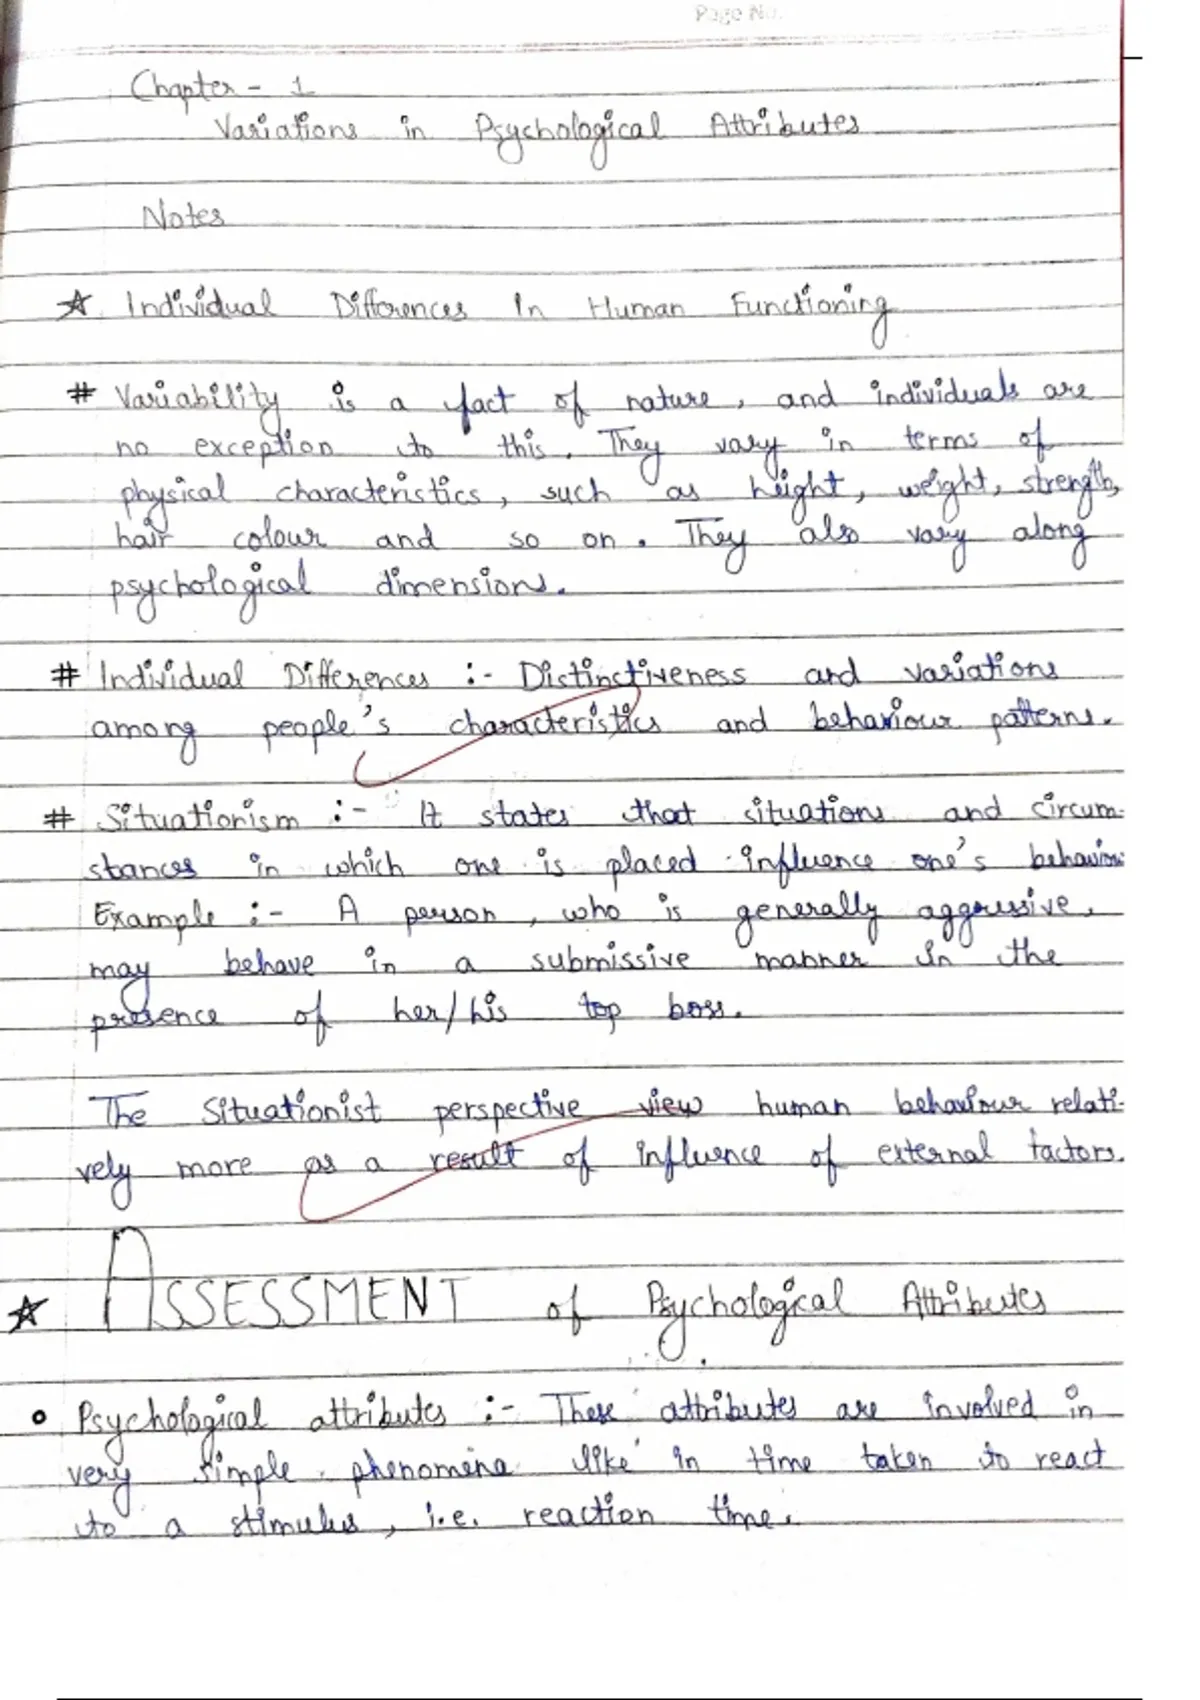 Page No.
Chapter - 1
Variations in Psychological Attributes
Notes
☆ Individual Differences In Human Functioning
# Variability is a fact of nature, and individuals are
no exception to this. They vary in terms of
physical characteristics, such as height, weight, strength,
hair colour and so on. They also vary along
psychological dimensions.
# Individual Differences :- Distinctiveness and variations
among people's characteristics and behaviour patterns.
# Situationism :- It states that situations and circum-
stances in which one is placed influence one's behaviour
Example :- A person, who is generally aggressive,
may behave in a submissive manner in the
presence of her/his top boss.
The Situationist perspective view human behaviour relati-
vely more as a result of influence of external factors.
☆ ASSESSMENT of Psychological Attributes
• Psychological attributes :- These attributes are involved in
very simple phenomena like in time taken to react
to a stimulus, i.e. reaction time.